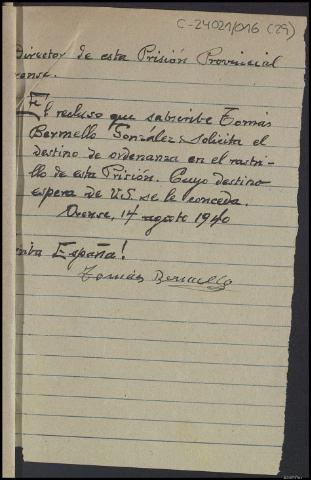 C-24021/016 (29)
Director de esta Prisión Provincial
rense.
El recluso que subscribe Tomás
Bermello González, solicita el
destino de ordenanza en el rastri-
llo de esta Prisión. Cuyo destino
espera de U.S. se le conceda.
Orense, 14 agosto 1940
rriba España!
Tomás Bermello